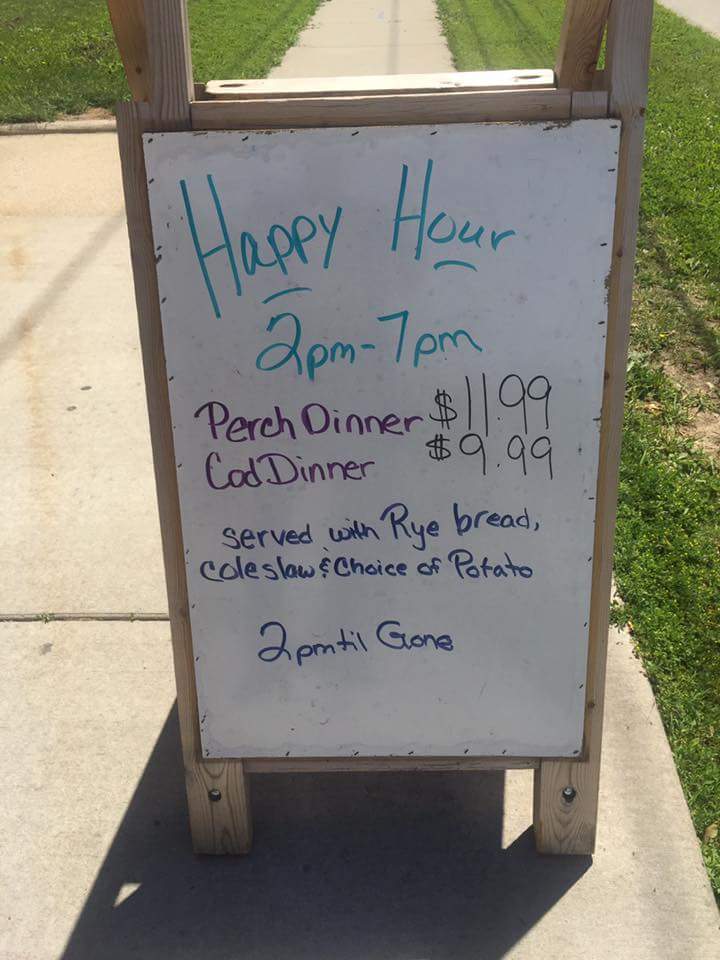 Happy Hour
2pm-7pm
Perch Dinner $11.99
Cod Dinner $9.99
served with Rye bread,
coleslaw & Choice of Potato
2pm til Gone